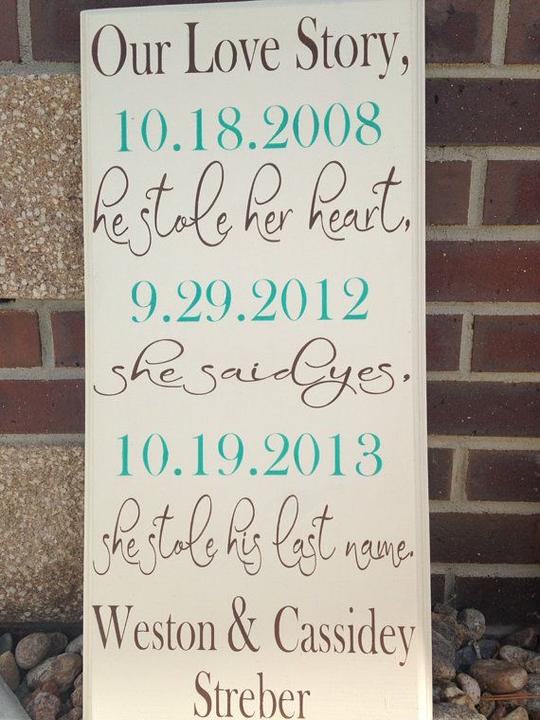 Our Love Story,
10.18.2008
he stole her heart,
9.29.2012
she said yes,
10.19.2013
she stole his last name.
Weston & Cassidey
Streber